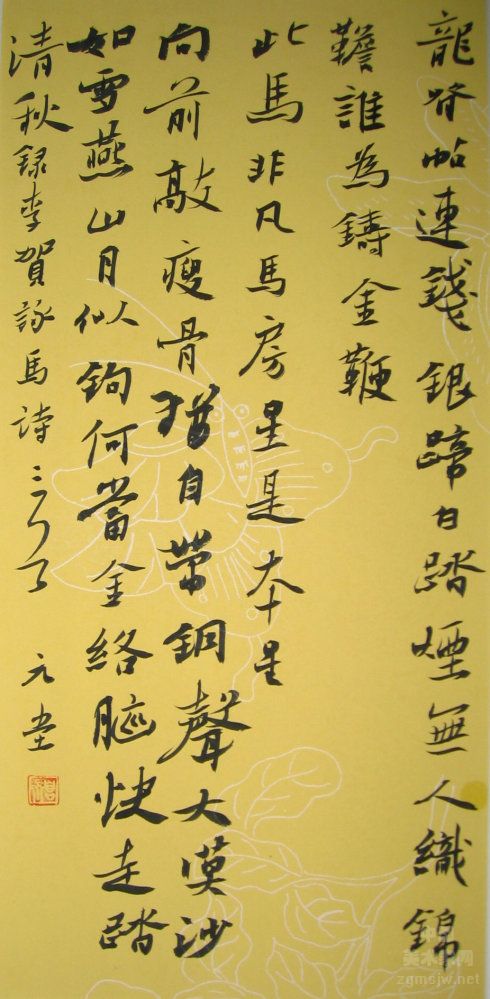 龍脊帖連錢銀蹄白踏煙無人織錦
韂誰為鑄金鞭
此馬非凡馬房星是夲星
向前敲瘦骨猶自帶銅聲大漠沙
如雪燕山月似鉤何當金絡腦快走踏
清秋録李賀詠馬詩三 元堂
美术家网
zgmsjw.net